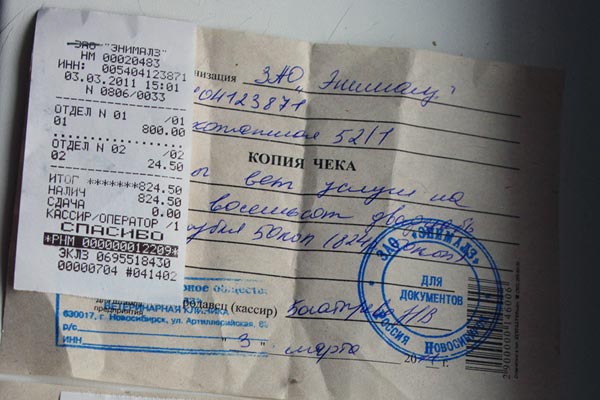 ЗАО "ЭНИМАЛЗ"
НМ 00020483
ИНН: 005404123871
03.03.2011 15:01
N 0806/0033
ОТДЕЛ N 01 /01
01 800.00
ОТДЕЛ N 02 /02
02 24.50
ИТОГ *******824.50
НАЛИЧ 824.50
СДАЧА 0.00
КАССИР/ОПЕРАТОР /1
СПАСИБО
*РНМ 000000012209*
ЭКЛЗ 0695518430
00000704 #041402
низация ЗАО "Энималз"
04123871
52/1
КОПИЯ ЧЕКА
вет услуги на
восемьсот двадцать
рубля 50коп (824
родавец (кассир)
"3" марта 20 г.
ное общество
предприятия
ВЕТЕРИНАРНАЯ КЛИНИКА
630017, г. Новосибирск, ул. Артиллерийская,
р/с
ИНН
ЗАО "ЭНИМАЛЗ"
ДЛЯ
ДОКУМЕНТОВ
РОССИЯ НОВОСИБИРСК
2900000146006